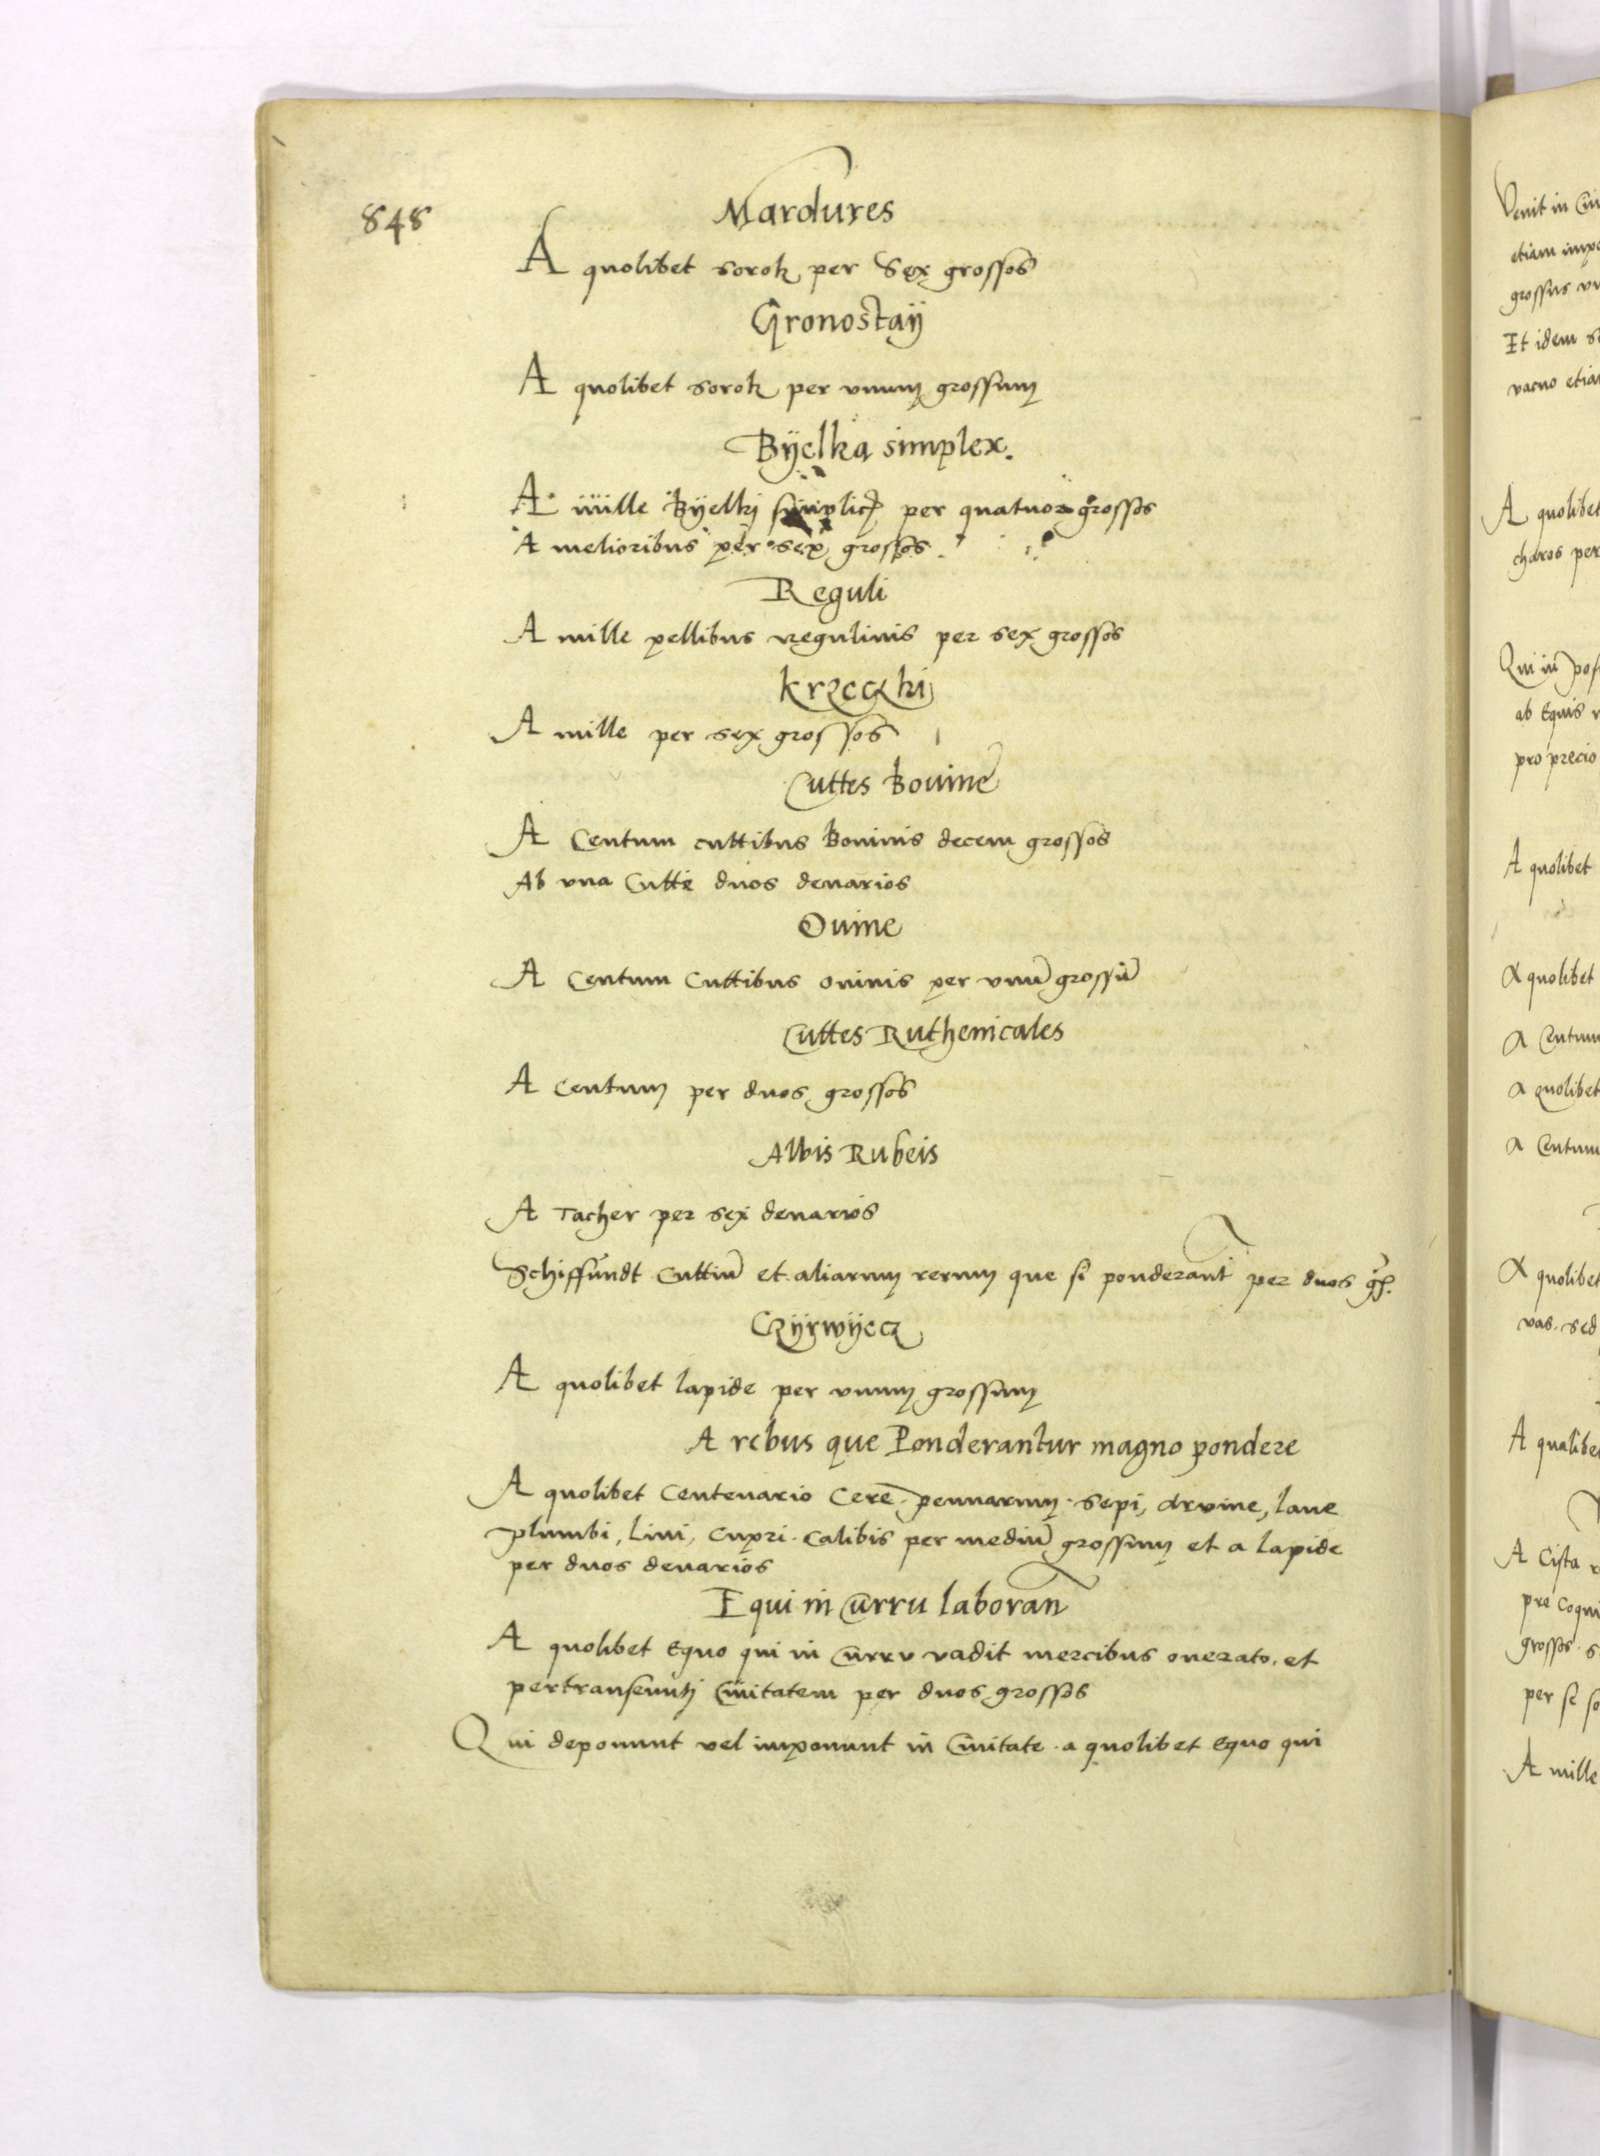 848
Mardures
A quolibet sorok per Sex grossos
Gronostaÿ
A quolibet sorok per vnum grossum
Bÿelka simplex.
A mille Bÿelki per quatuor grossos
A melioribus per sex grossos.
Reguli
A mille pellibus regulinis per sex grossos
Krzeczki
A mille per sex grossos
Cuttes Bouine
A Centum cuttibus Bouinis decem grossos
Ab vna Cutte duos denarios
Ouine
A Centum Cuttibus ouinis per vnũ grossũ
Cuttes Ruthenicales
A Centum per duos grossos
Albis Rubeis
A Tacher per sex denarios
Schiffũndt Cuttiũ et aliarum rerum que si ponderant̃ per duos gr̃.
Czÿrwÿecz
A quolibet lapide per vnum grossum
A rebus que Ponderantur magno pondere
A quolibet Centenario Cere. pennarum. sepi, aruine, lane
plumbi, lini, Cupri. Calibis per mediũ grossum et a lapide
per duos denarios
Equi in Curru laboran̄
A quolibet Equo qui in Curru vadit mercibus onerato. et
Ciuitatem per duos grossos
Qui deponunt vel imponunt in Ciuitate. a quolibet Equo qui
Venit in
etiam
grossus
Et idem
vacuo
A quolibet
charos per
ab Equis
pro precio
A quolibet
A quolibet
A Centum
A quolibet
A Centum
A quolibet
vas. sed
A qualibet
A Cista
pre
grossos.
per se
A mille